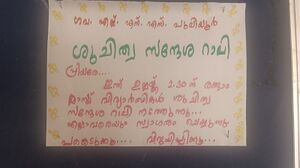 ഗവ. എൽ. എസ്. എസ്. പുലിയൂർ
ശുചിത്വ സന്ദേശ റാലി
പ്രിയരെ...
ഇന്ന് ഉച്ചയ്ക്ക് 2.30 ന് രണ്ടാം
ക്ലാസ് വിദ്യാർത്ഥികൾ ശുചിത്വ
സന്ദേശ റാലി നടത്തുന്നു...
എല്ലാവരെയും സ്വാഗതം ചെയ്യുന്നു
പങ്കെടുക്കൂ... വിജയിപ്പിക്കൂ...